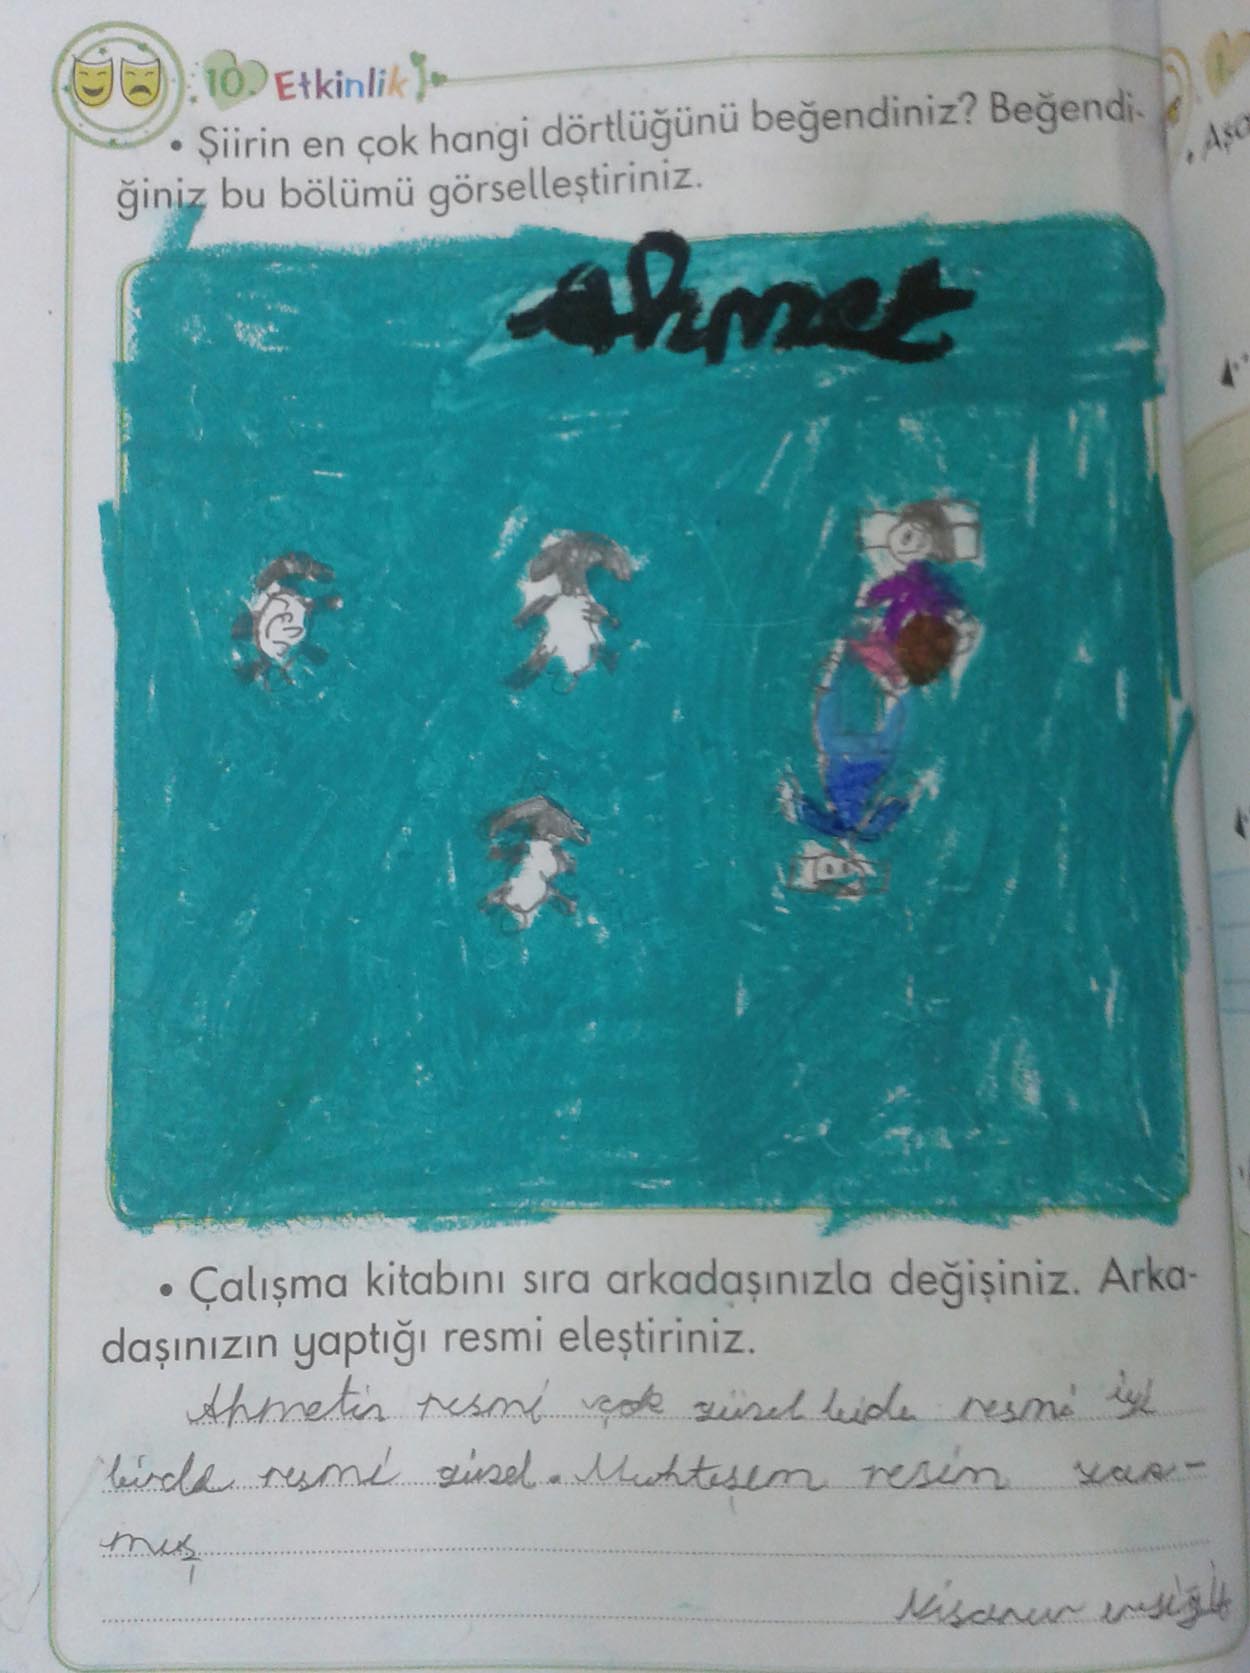 10. Etkinlik
• Şiirin en çok hangi dörtlüğünü beğendiniz? Beğendi-
ğiniz bu bölümü görselleştiriniz.
Ahmet
• Çalışma kitabını sıra arkadaşınızla değişiniz. Arka-
daşınızın yaptığı resmi eleştiriniz.
Ahmetin resmi çok güzel bide resmi iyi
birde resmi güzel. Muhteşem resim yap-
mış
Nisanur